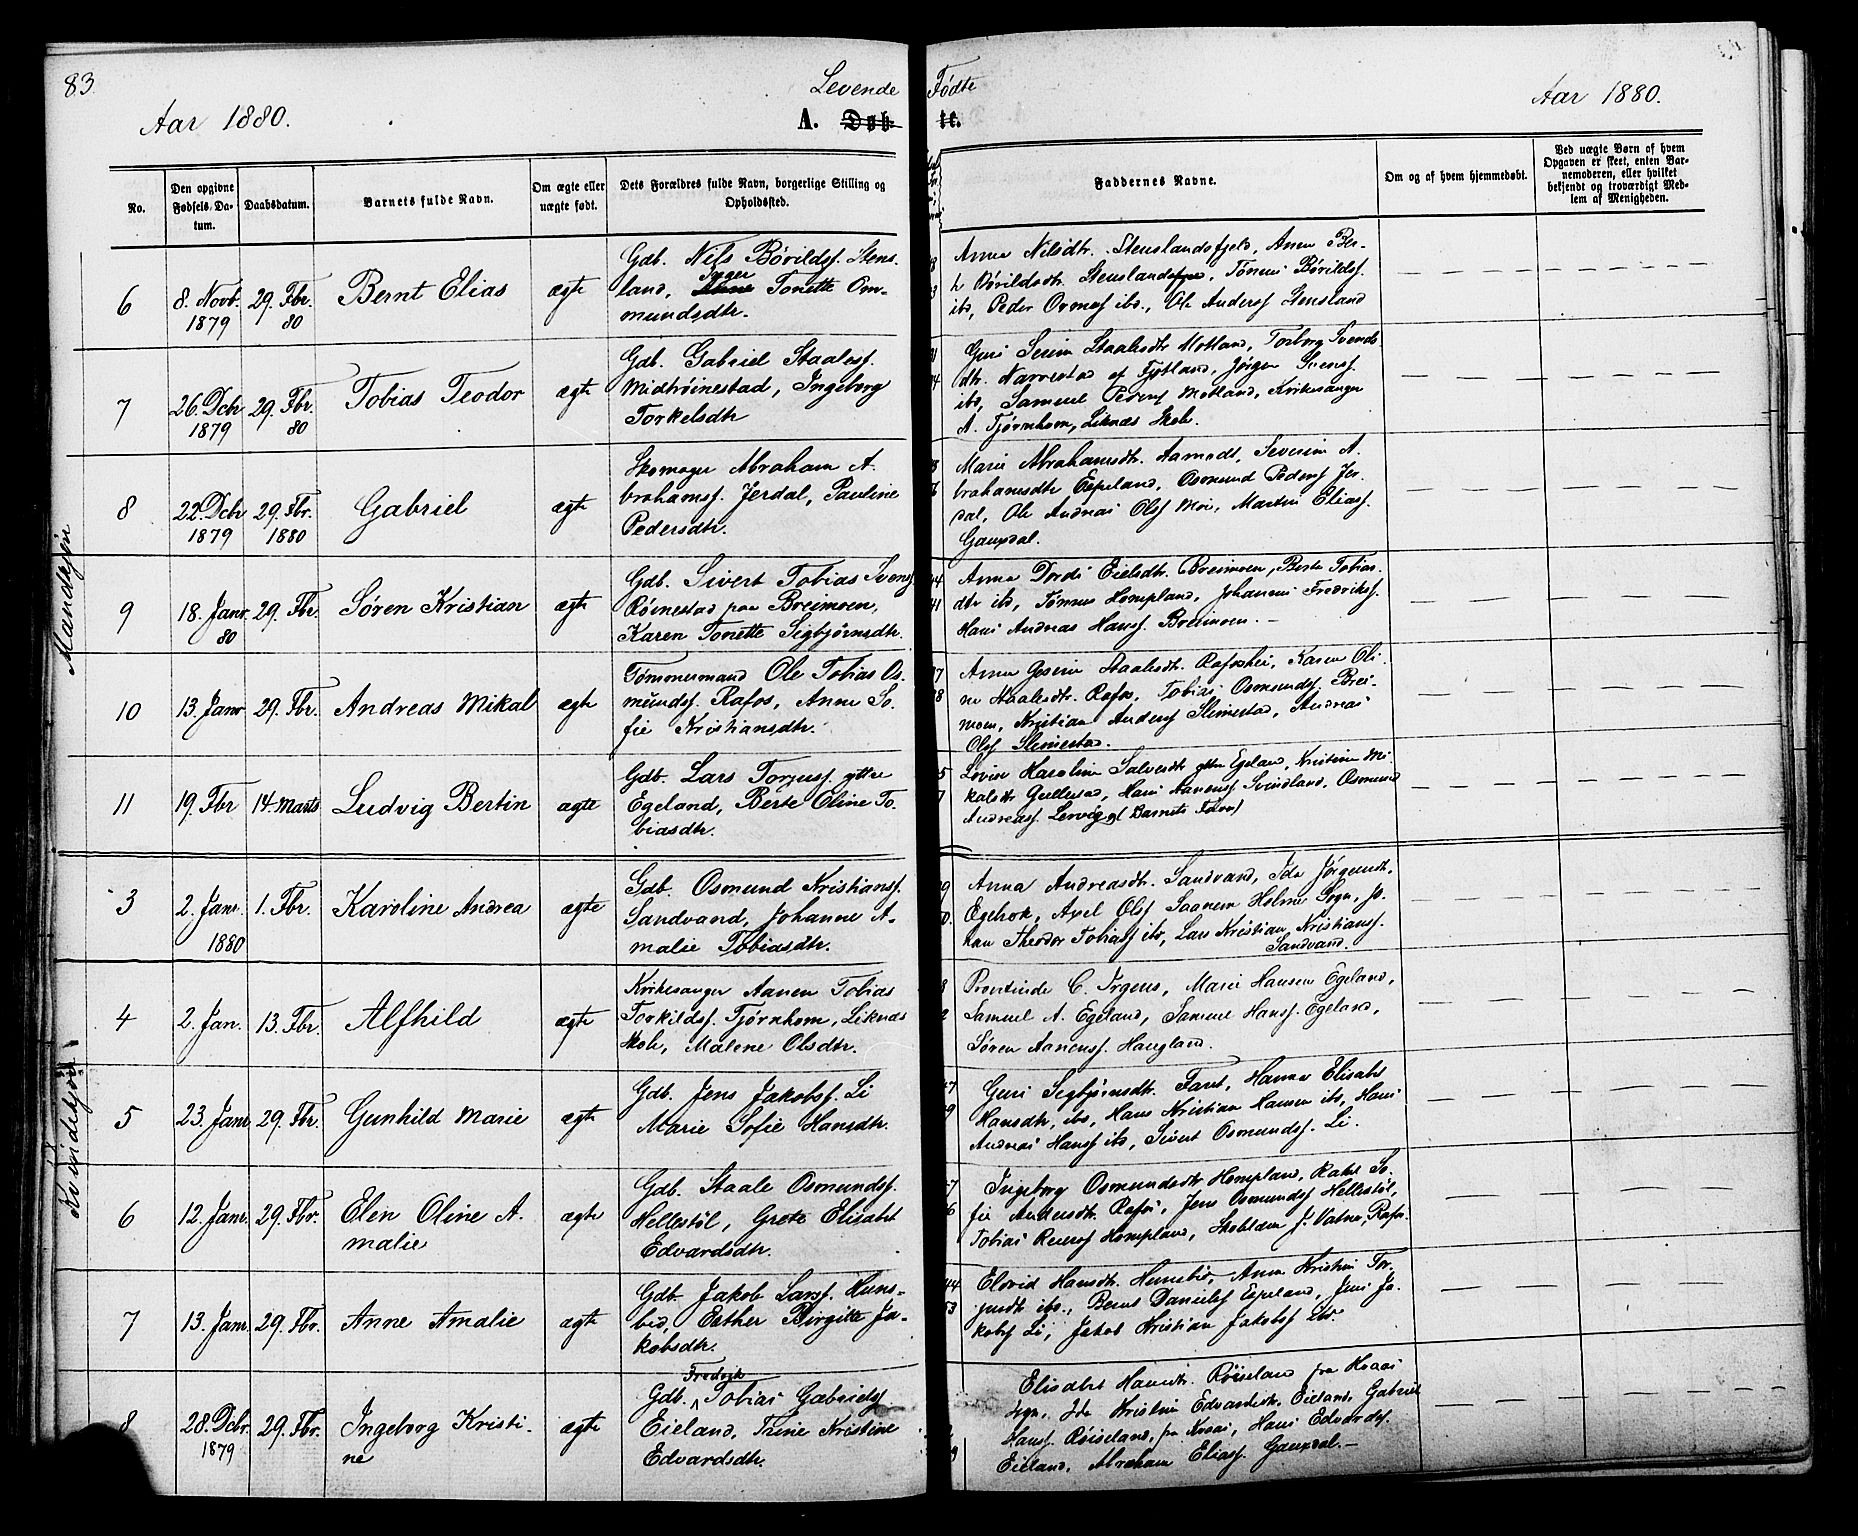 83
Levende Fødte
Aar 1880.
A. Døbte.
Aar 1880.
No.
Den opgivne Fødsels-Datum.
Daabsdatum.
Barnets fulde Navn.
Om ægte eller uægte født.
Dets Forældres fulde Navn, borgerlige Stilling og Opholdssted.
Faddernes Navne.
Om og af hvem hjemmedøbt.
Ved uægte Børn af hvem Opgaven er skeet, enten Barnemoderen, eller hvilket bekjendt og troværdigt Medlem af Menigheden.
Mandkjøn
6
8. Novb. 1879
29. Fbr. 80
Bernt Elias
ægte
Gdb. Nils Børildsf. Stens-
land, Inger Tonette Om-
mundsdtr.
Anna Nilsdtr. Stenslandsfjeld, Anne Ber-
te Børildsdtr. Stensland, Tønnes Børildsf.
ibd, Peder Ovmes ibd., Ole Andersf Stensland
7
26. Dcbr 1879
29. Fbr. 80
Tobias Teodor
ægte
Gdb. Gabriel Staalesf.
Midtrøinestad, Ingeborg
Torkelsdtr
Guri Serine Staalesdtr Motland, Torborg Svends
dtr. Narvestad af Fjotland, Jørgen Svensf.
ibd, Samuel Pedersf Motland, Kirkesanger
A. Tjørnhom, Liknæs Skole.
8
22. Dcbr 1879
29. Fbr. 1880
Gabriel
ægte
Skomager Abraham A-
brahamsf. Jerdal, Pauline
Pedersdtr.
Marie Abrahamsdtr. Aamodt, Severine A.
brahamsdtr Espeland, Osmund Pedersf Jer-
dal, Ole Andreas Olsf Moi, Martin Eliasf.
Gaupdal.
9
18. Janr. 80
29. Fbr.
Søren Kristian
ægte
Gdb. Sivert Tobias Svensf
Røinestad paa Breimoen,
Karen Tonette Sigbjørnsdtr.
Anna Dordi Eielsdtr. Breimoen, Berte Tobias
dtr ibd, Tønnes Hompland, Johannes Fredriksf.
Hans Andreas Hansf. Breimoen. -
10
13. Janr
29. Fbr.
Andreas Mikal
ægte
Tømmermand Ole Tobias Os-
mundsf. Rafos, Anne So-
fie Kristiansdtr.
Anne Gesine Staalesdtr. Rafoshei, Karen Oli
ne Staalesdtr. Rafos, Tobias Osmundsf. Brei-
moen, Kristian Andersf Slimestad, Andreas
Olsf Slimestad.
11
19. Fbr
14 Marts
Ludvig Bertin
ægte
Gdb. Lars Torjusf. ytter
Egeland, Berte Oline To-
biasdtr.
Lovise Karoline Salvesdtr ytter Egeland, Kristine Mi
kalsdtr Gullestad, Hans Aanensf Svindland, Osmund
Andreasf. Lervig, (Barnets Fader)
Kvindekjøn
3
2. Janr. 1880
1. Fbr.
Karoline Andrea
ægte
Gdb. Osmund Kristiansf.
Sandvand, Johanne A-
malie Tobiasdtr.
Anna Andreasdtr. Sandvand, Ida Jørgensdtr.
Egehok, Axel Olsf Saanem Helme Sogn, Jo.
han Theodor Tobiasf ibd, Lars Kristian Kristiansf.
Sandvand.
4
2. Jan.
13. Fbr.
Alfhild
ægte
Kirkesanger Aanen Tobias
Torkildsf. Tjørnhom, Liknæs
Skole, Malene Olsdtr.
C. Irgens, Marie Hansen Egeland,
Samuel A. Egeland, Samuel Hansf. Egeland,
Søren Aanensf. Haugland.
5
23. Janr.
29. Fbr.
Gunhild Marie
ægte
Gdb. Jens Jakobsf. Li
Marie Sofie Hansdtr.
Guri Sigbjørnsdtr. Faret, Hanna Elisabet
Hansdtr, ibd, Hans Kristian Hansen ibd, Hans
Andreas Hansf ibd, Sivert Osmundsf. Li.
6
12. Janr.
29. Fbr.
Elen Oline A.
malie
ægte
Gdb. Staale Osmundsf.
Hellestöl, Grete Elisabet
Edvardsdtr.
Ingeborg Osmundsdtr Hompland, Rakel So.
fie Andersdtr. Rafos, Jens Osmundsf Hellestöl,
Tobias Reiersf Hompland, J. Vatne, Rafos.
7
13. Janr.
29. Fbr.
Anne Amalie
ægte
Gdb. Jakob Larsf. Huns-
bed, Esther Birgitte Ja-
kobsdtr.
Elovid Hansdtr. Hunsbed, Anne Kristine Tor.
jusdtr ibd., Bernt Danielsf Espeland, Jens Ja-
kobsf Li, Jakob Kristian Jakobsf ibd.
8
28. Dcbr. 1879
29. Fbr.
Ingeborg Kristi-
ne
ægte
Gdb. Fredrik Tobias Gabrielsf
Eieland, Trine Kristine
Edvardsdtr.
Elisabet Hansdtr. Røiseland fra Kvaas
Sogn, Ida Kristine Edvardsdtr. Eieland, Gabriel
Hansf. Røiseland, fra Kvaas, Hans Edvardsf.
Eieland, Abraham Eliasf. Gaupdal.-